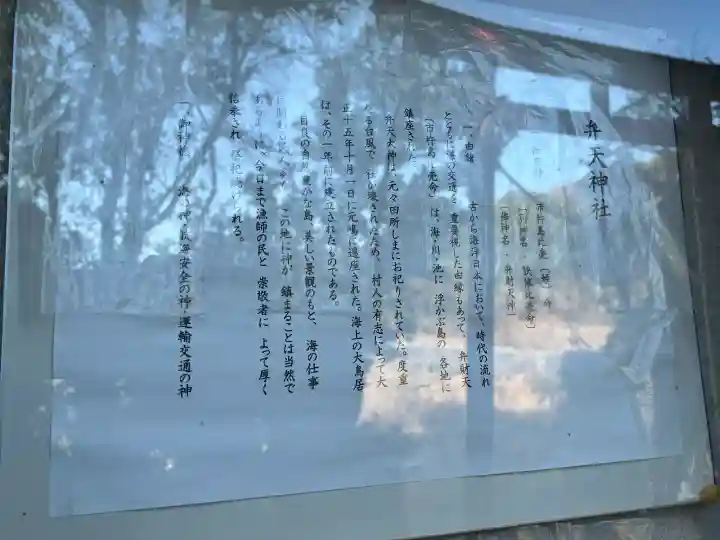 弁天神社
市杵島比売(姫)命
(別御名・狭依比売命)
(俗神名・弁財天神)
一、由緒 古から海洋日本において、時代の流れ
とともに海の交通を重要視した由縁もあって、弁財天
「市杵島比売命」は、海・川・池に浮かぶ島の各地に
鎮座された。
弁天大神は、元々田所しまにお祀りされていた。度重
なる台風で、社が壊されたため、村人の有志によって大
正十五年十月一日に元嶋に遷座された。海上の大鳥居
は、その一年前に建立されたものである。
自然の豊かな島、美しい景観のもと、海の仕事
この地に神が鎮まることは当然で
今日まで漁師の民と崇敬者によって厚く
信奉され、祭祀されている。
一、御神徳 海の神・航海安全の神・運輸交通の神